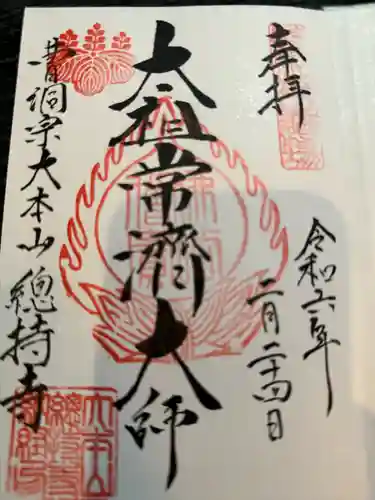 奉拝
令和六年
二月二十四日
大祖常濟大師
曹洞宗大本山總持寺